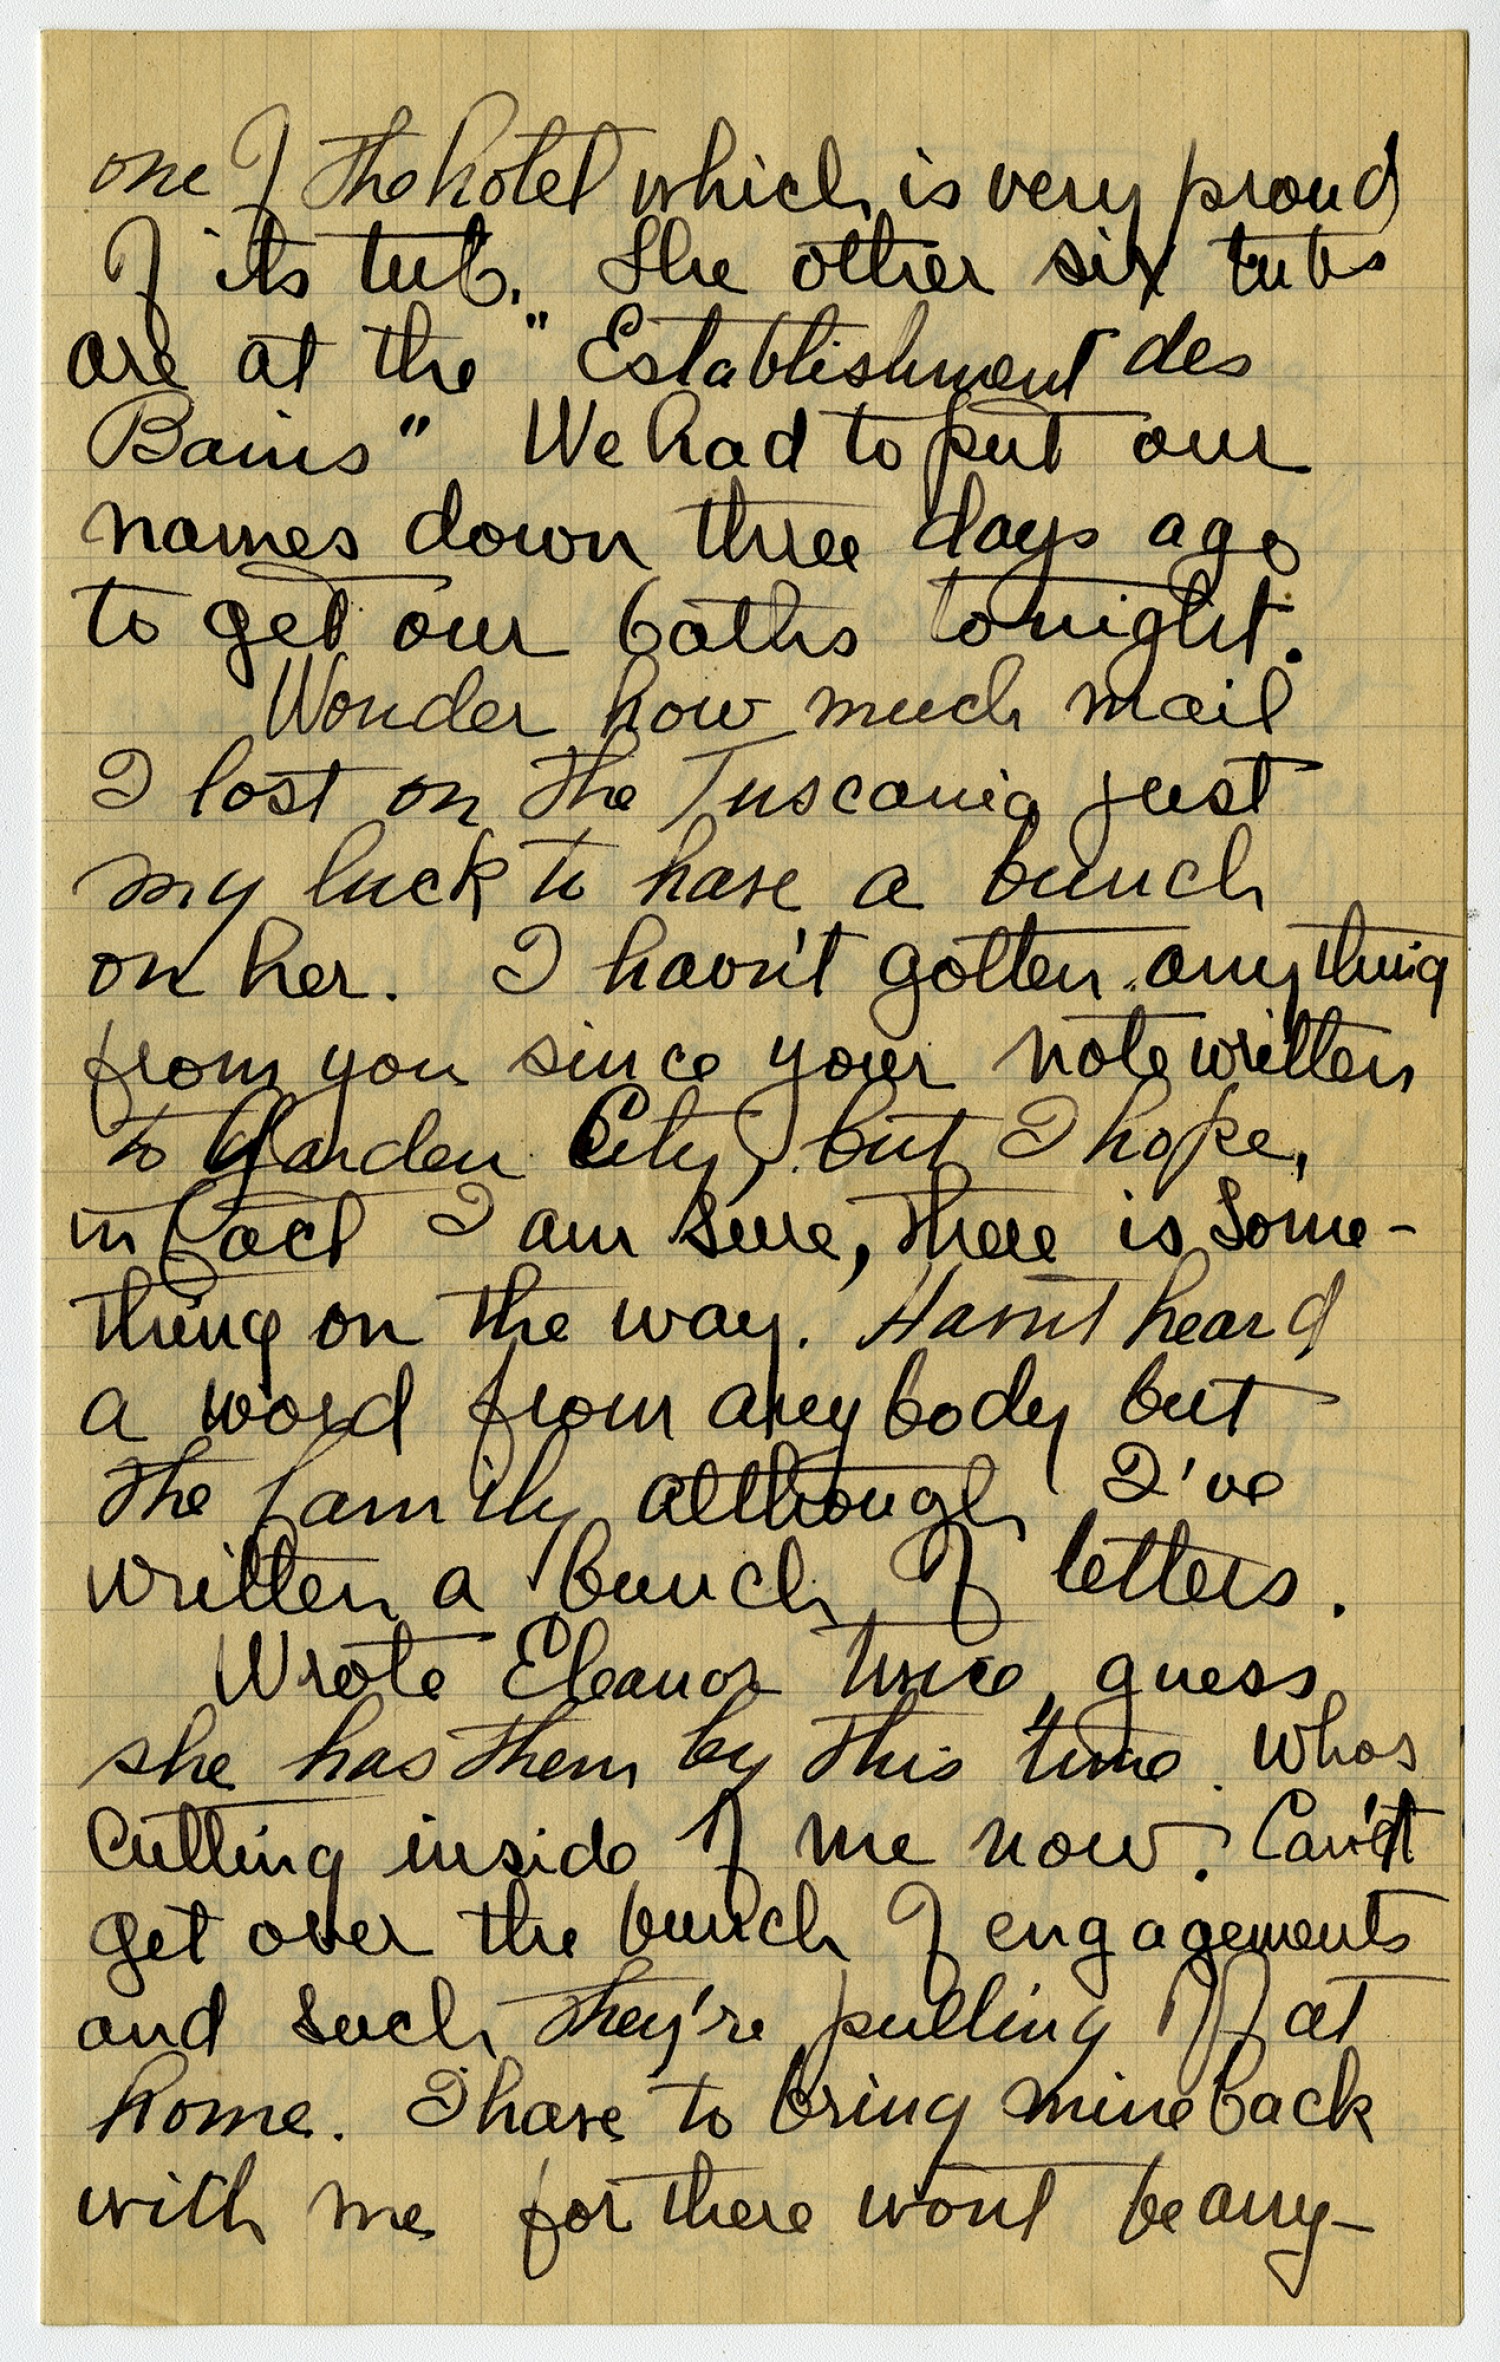 one of the hotel which is very proud
of its tub. The other six tubs
are at the "Establishment des
Bains" We had to put our
names down three days ago
to get our baths tonight.
Wonder how much mail
I lost on the Tuscania just
my luck to have a bunch
on her. I havn't gotten anything
from you since your note written
to Garden City, but I hope,
in fact I am sure, there is some-
thing on the way. Havnt heard
a word from anybody but
the family although I've
written a bunch of letters.
Wrote Eleanor twice, guess
she has them by this time. Whos
cutting inside of me now? Can't
get over the bunch of engagements
and such they're pulling off at
home. I have to bring mine back
with me for there wont be any-